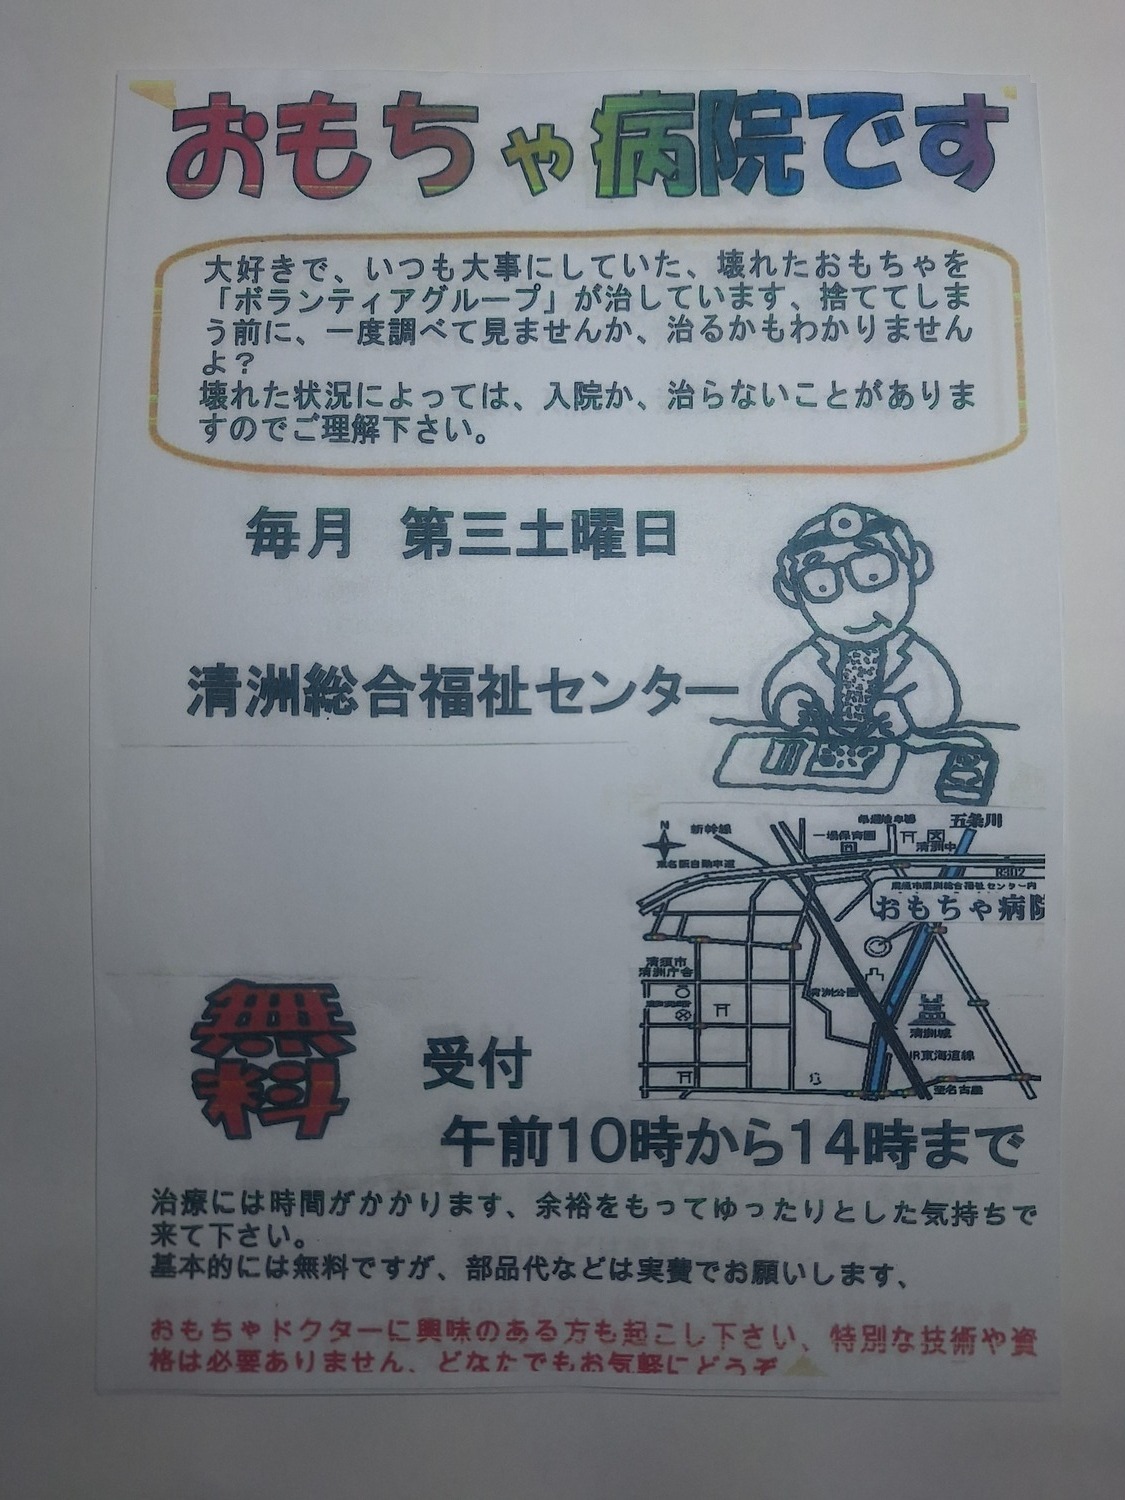 おもちゃ病院です
大好きで、いつも大事にしていた、壊れたおもちゃを
「ボランティアグループ」が治しています、捨ててしま
う前に、一度調べて見ませんか、治るかもわかりません
よ？
壊れた状況によっては、入院か、治らないことがありま
すのでご理解下さい。
毎月 第三土曜日
清洲総合福祉センター
五条川
N
新幹線
一場保育園
清洲中
東名阪自動車道
R302
清須市清洲総合福祉センター内
おもちゃ病院
清須市
清洲庁舎
清洲公園
清洲城
JR東海道線
至名古屋
無料
受付
午前10時から14時まで
治療には時間がかかります、余裕をもってゆったりとした気持ちで
来て下さい。
基本的には無料ですが、部品代などは実費でお願いします、
おもちゃドクターに興味のある方も起こし下さい、特別な技術や資
格は必要ありません、どなたでもお気軽にどうぞ